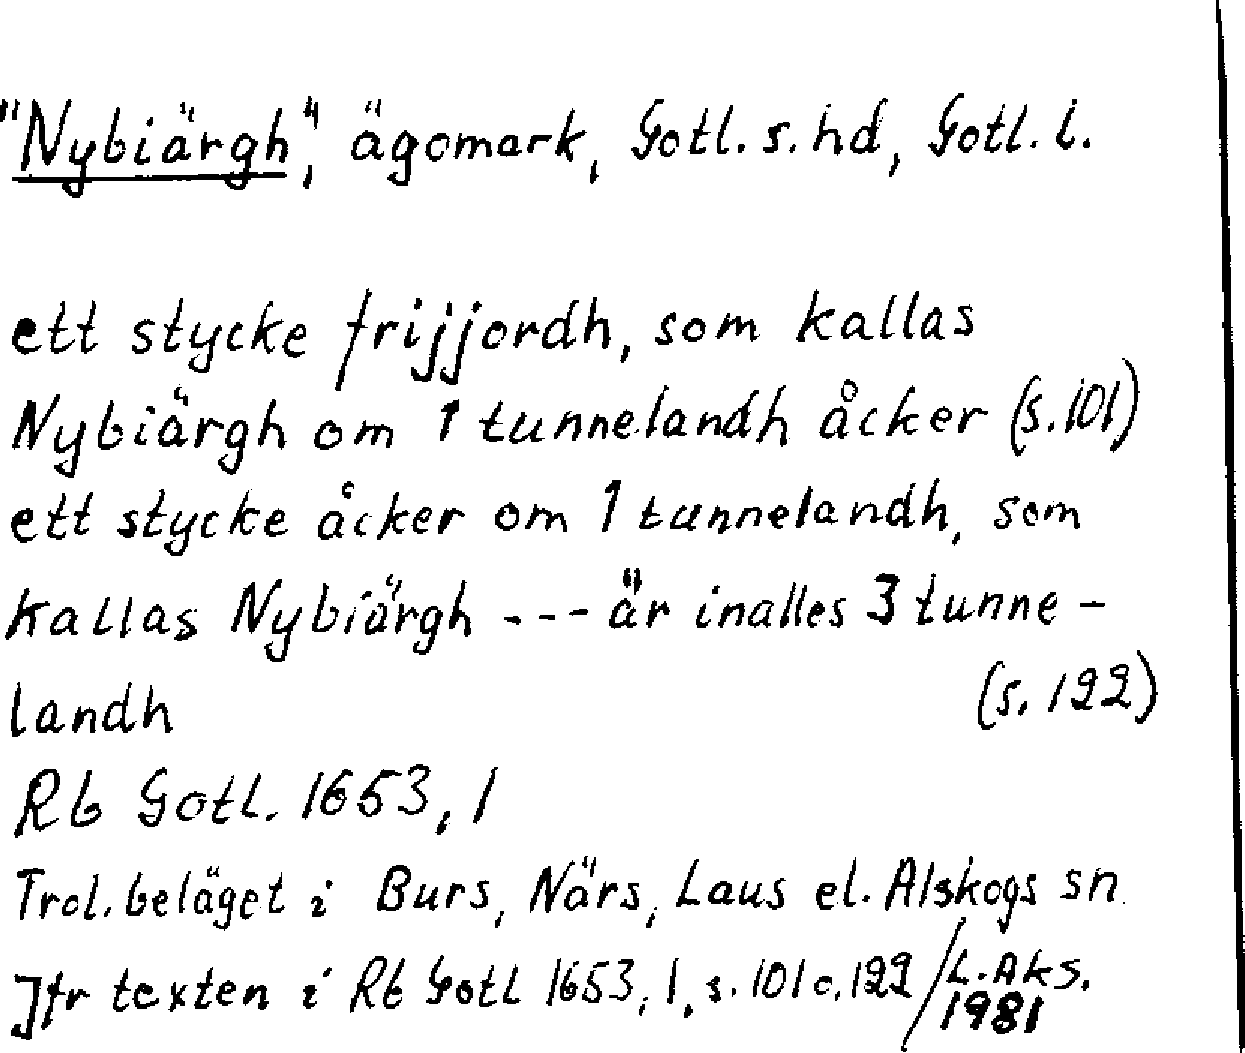 "Nybiärgh", ägomark, Gotl. s. hd, Gotl. l.
ett stycke frijjordh, som kallas
Nybiärgh om 1 tunnelandh åcker (s. 101)
ett stycke åcker om 1 tunnelandh, som
kallas Nybiärgh --- är inalles 3 tunne-
landh (s. 122)
Rb Gotl. 1653, 1
Trol. beläget i Burs, Närs, Laus el. Alskogs sn.
Jfr texten i Rb Gotl 1653, 1, s. 101 o. 122 / L. Aks.
1981